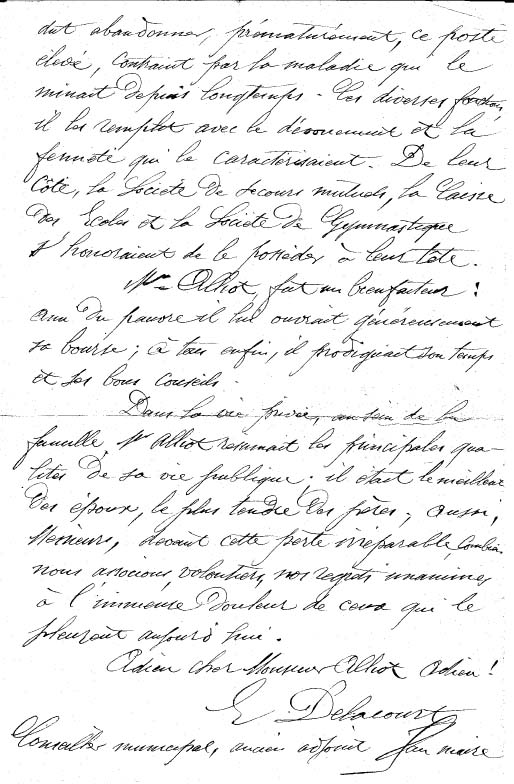 dut abandonner, prématurément, ce poste
élevé, contraint par la maladie qui le
minait depuis longtemps. Ces diverses fonctions
il les remplit avec le dévouement et la
fermeté qui le caractérisaient. De leur
côté, la Société de secours mutuels, la Caisse
des Ecoles et la Société de Gymnastique
s'honoraient de le posséder à leur tête.
Mr Alliot, fut un bienfaiteur :
ami du pauvre il lui ouvrait généreusement
sa bourse ; à tous enfin, il prodiguait son temps
et ses bons conseils.
Dans la vie privée, au sein de la
famille, Mr Alliot résumait les principales qua-
lités de sa vie publique ; il était le meilleur
des époux, le plus tendre des pères ; aussi,
Messieurs, devant cette perte irréparable, combien
nous associons volontiers, nos regrets unanimes
à l'immense douleur de ceux qui le
pleurent aujourd'hui.
Adieu cher Monsieur Alliot adieu !
E Delacourt
Conseiller municipal, ancien adjoint au maire